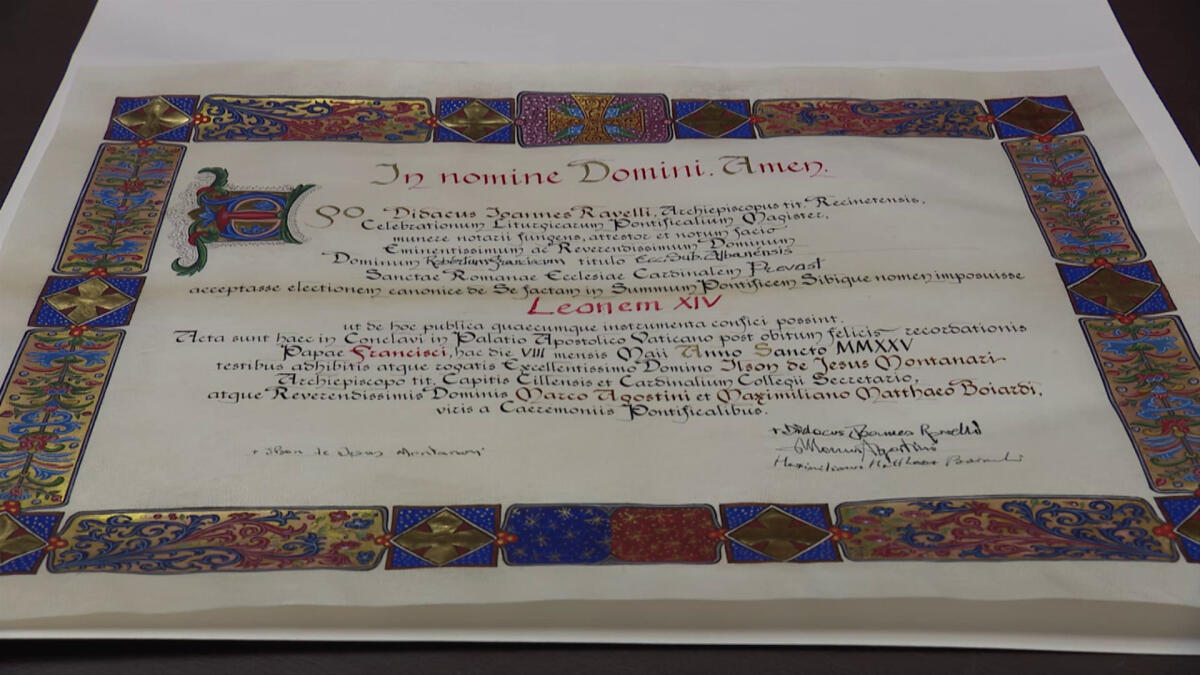 In nomine Domini. Amen.
EGO Didacus Ioannes Ravelli, Archiepiscopus tit. Recinetensis,
Celebrationum Liturgicarum Pontificalium Magister,
munere notarii fungens, attestor et notum facio
Eminentissimum ac Reverendissimum Dominum
Dominum Robertum Franciscum titulo Eccl. Sub. Albanensis
Sanctae Romanae Ecclesiae Cardinalem Prevost
acceptasse electionem canonice de Se factam in Summum Pontificem Sibique nomen imposuisse
Leonem XIV
ut de hoc publica quaecumque instrumenta confici possint.
Acta sunt haec in Conclavi in Palatio Apostolico Vaticano post obitum felicis recordationis
Papae Francisci, hac die VIII mensis Maii Anno Sancto MMXXV
testibus adhibitis atque rogatis Excellentissimo Domino Ilson de Jesus Montanari
Archiepiscopo tit. Capitis Cillensis et Cardinalium Collegii Secretario,
atque Reverendissimis Dominis Marco Agostini et Maximiliano Matthaeo Boiardi,
viris a Caeremoniis Pontificalibus.
+ Didacus Ioannes Ravelli
+ Ilson de Jesus Montanari
Marcus Agostini
Maximilianus Matthaeus Boiardi